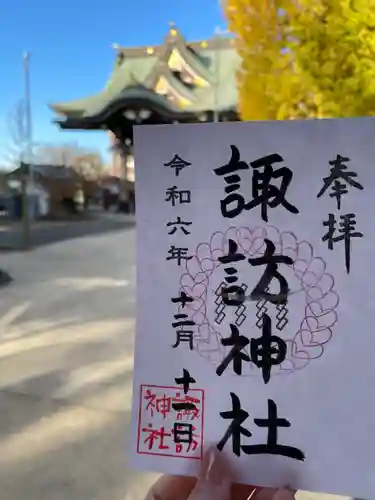 奉拝
諏訪神社
令和六年十二月十一日
諏訪
神社